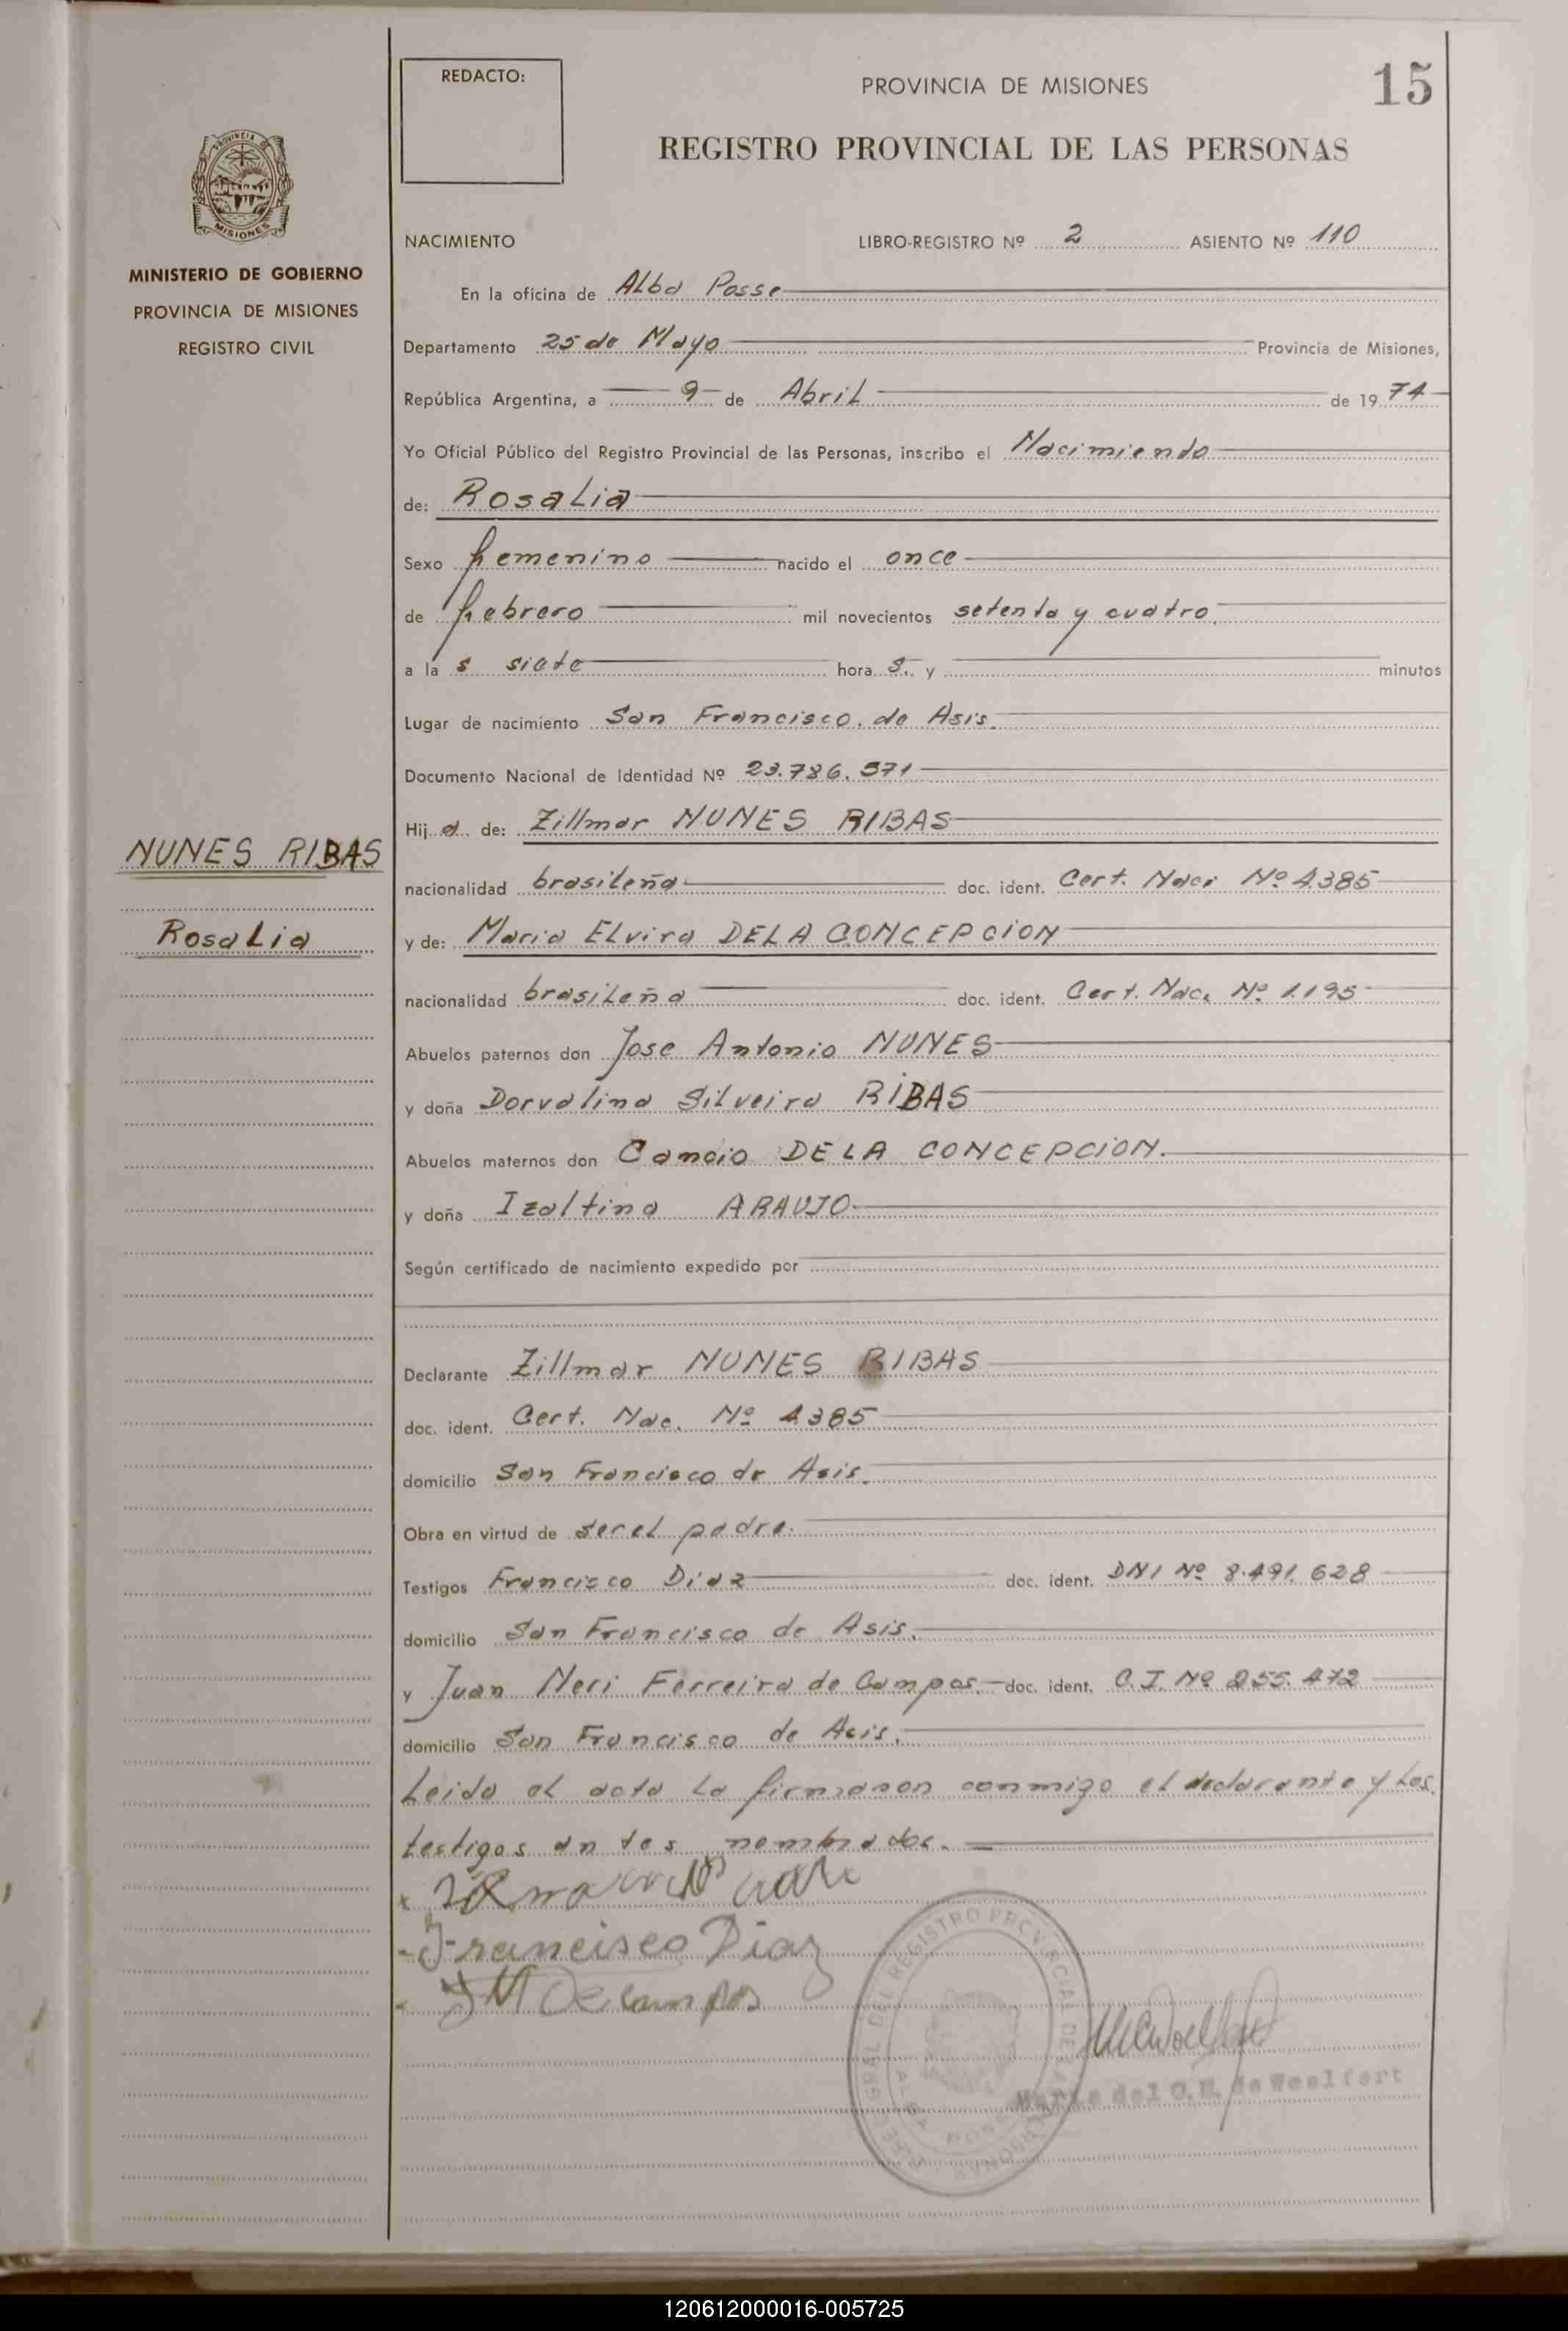 REDACTO:
PROVINCIA DE MISIONES
15
REGISTRO PROVINCIAL DE LAS PERSONAS
PROVINCIA DE
MISIONES
MINISTERIO DE GOBIERNO
PROVINCIA DE MISIONES
REGISTRO CIVIL
NACIMIENTO LIBRO-REGISTRO Nº 2 ASIENTO Nº 110
En la oficina de Alba Posse
Departamento 25 de Mayo Provincia de Misiones,
República Argentina, a 9 de Abril de 1974
Yo Oficial Público del Registro Provincial de las Personas, inscribo el Nacimiento
de: Rosalia
Sexo femenino nacido el once
de febrero mil novecientos setenta y cuatro,
a la s siete hora s. y minutos
Lugar de nacimiento San Francisco de Asis.
Documento Nacional de Identidad Nº 23.786.571
Hij a de: Zillmar NUNES RIBAS
NUNES RIBAS
nacionalidad brasileña doc. ident. Cert. Naci Nº 4385
Rosalia
y de: Maria Elvira DE LA CONCEPCION
nacionalidad brasileña doc. ident. Cert. Nac. Nº 1.195
Abuelos paternos don Jose Antonio NUNES
y doña Dorvalina Silveira RIBAS
Abuelos maternos don Cancio DE LA CONCEPCION.
y doña Izaltina ARAUJO
Según certificado de nacimiento expedido por
Declarante Zillmar NUNES RIBAS
doc. ident. Cert. Nac. Nº 4385
domicilio San Francisco de Asis.
Obra en virtud de ser el padre.
Testigos Francisco Diaz doc. ident. DNI Nº 8.491.628
domicilio San Francisco de Asis.
y Juan Neri Ferreira de Campos. doc. ident. C.I. Nº 255.472
domicilio San Francisco de Asis.
Leida el acta la firmaron conmigo el declarante y los
testigos antes nombrados.
Francisco Diaz
JM De campos
REGISTRO PROVINCIAL DE LAS PERSONAS
ALBA POSSE
Maria del C.M. de Woelfert
120612000016-005725